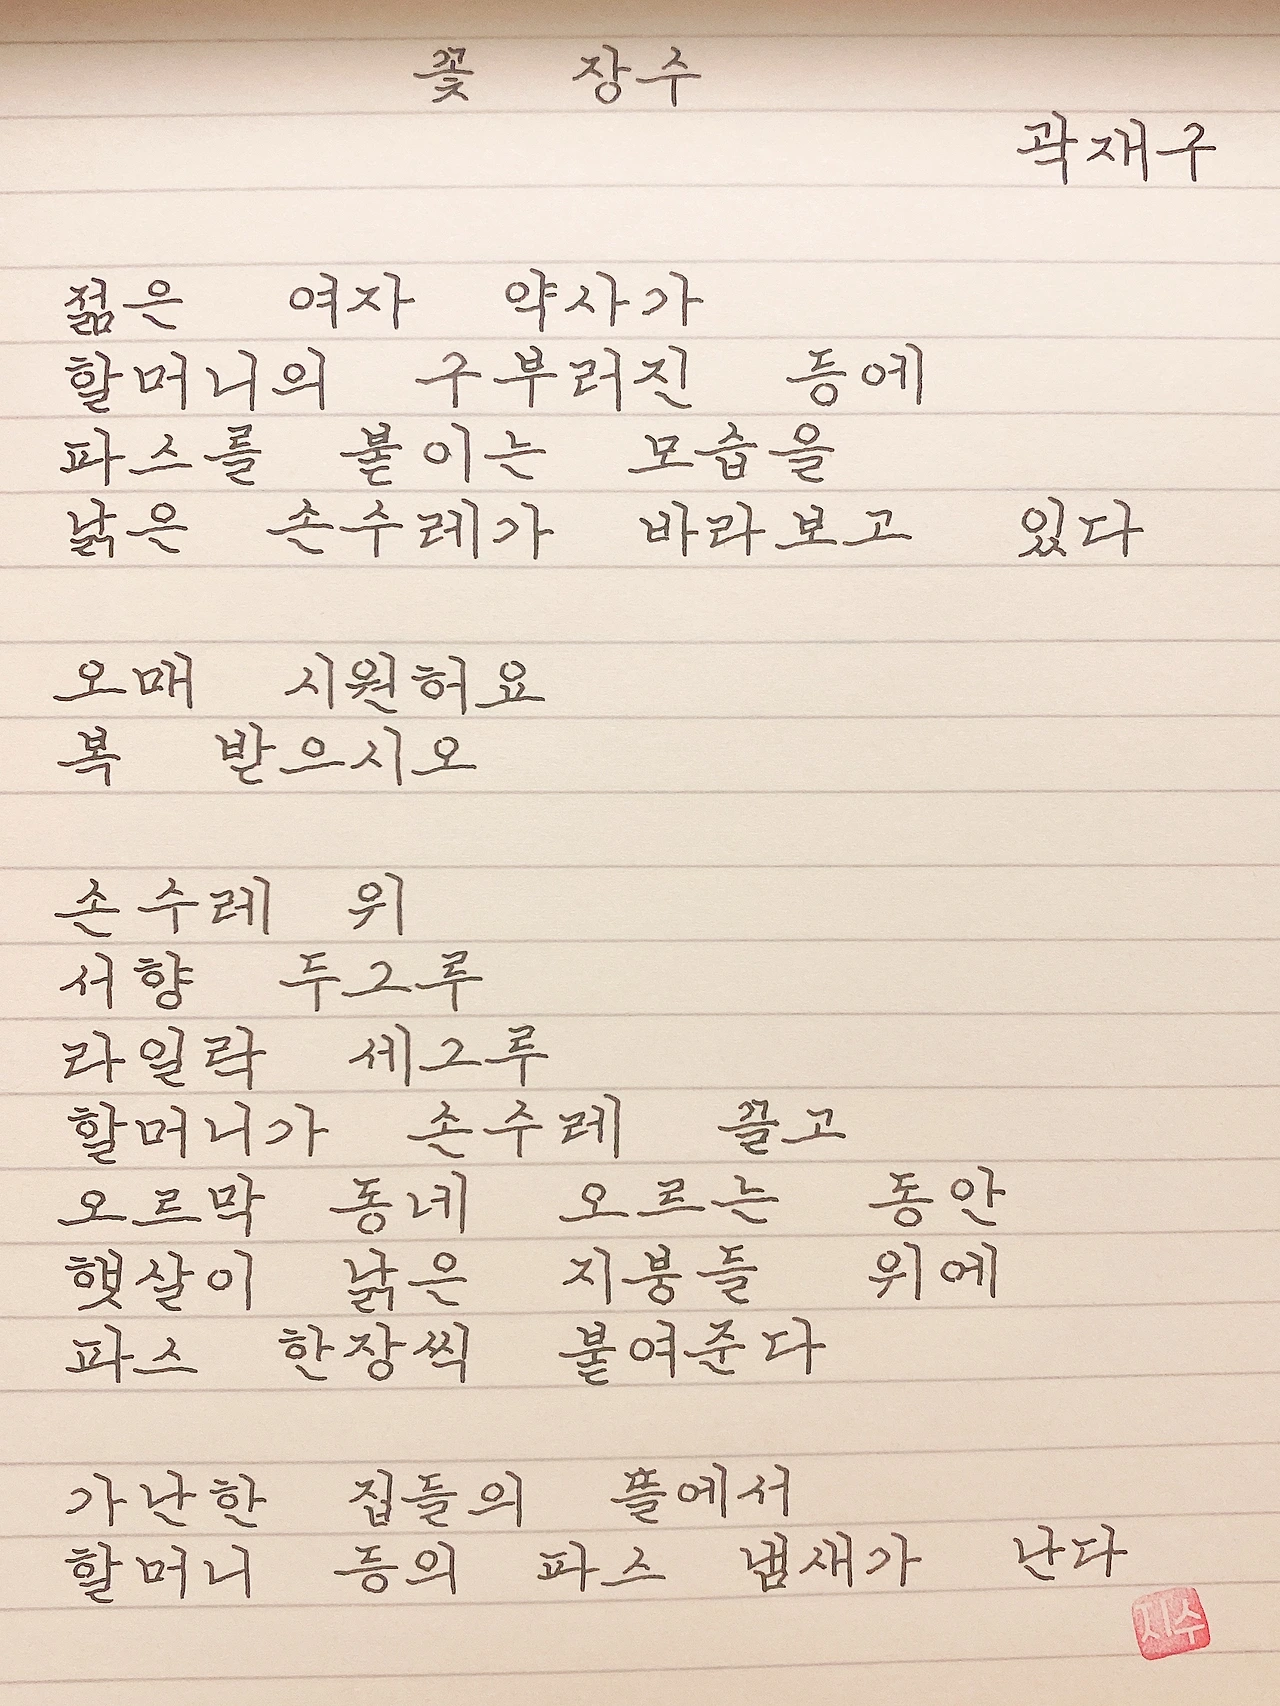 꽃 장수
곽재구
젊은 여자 약사가
할머니의 구부러진 등에
파스를 붙이는 모습을
낡은 손수레가 바라보고 있다
오매 시원허요
복 받으시오
손수레 위
서향 두그루
라일락 세그루
할머니가 손수레 끌고
오르막 동네 오르는 동안
햇살이 낡은 지붕들 위에
파스 한장씩 붙여준다
가난한 집들의 뜰에서
할머니 등의 파스 냄새가 난다
지수